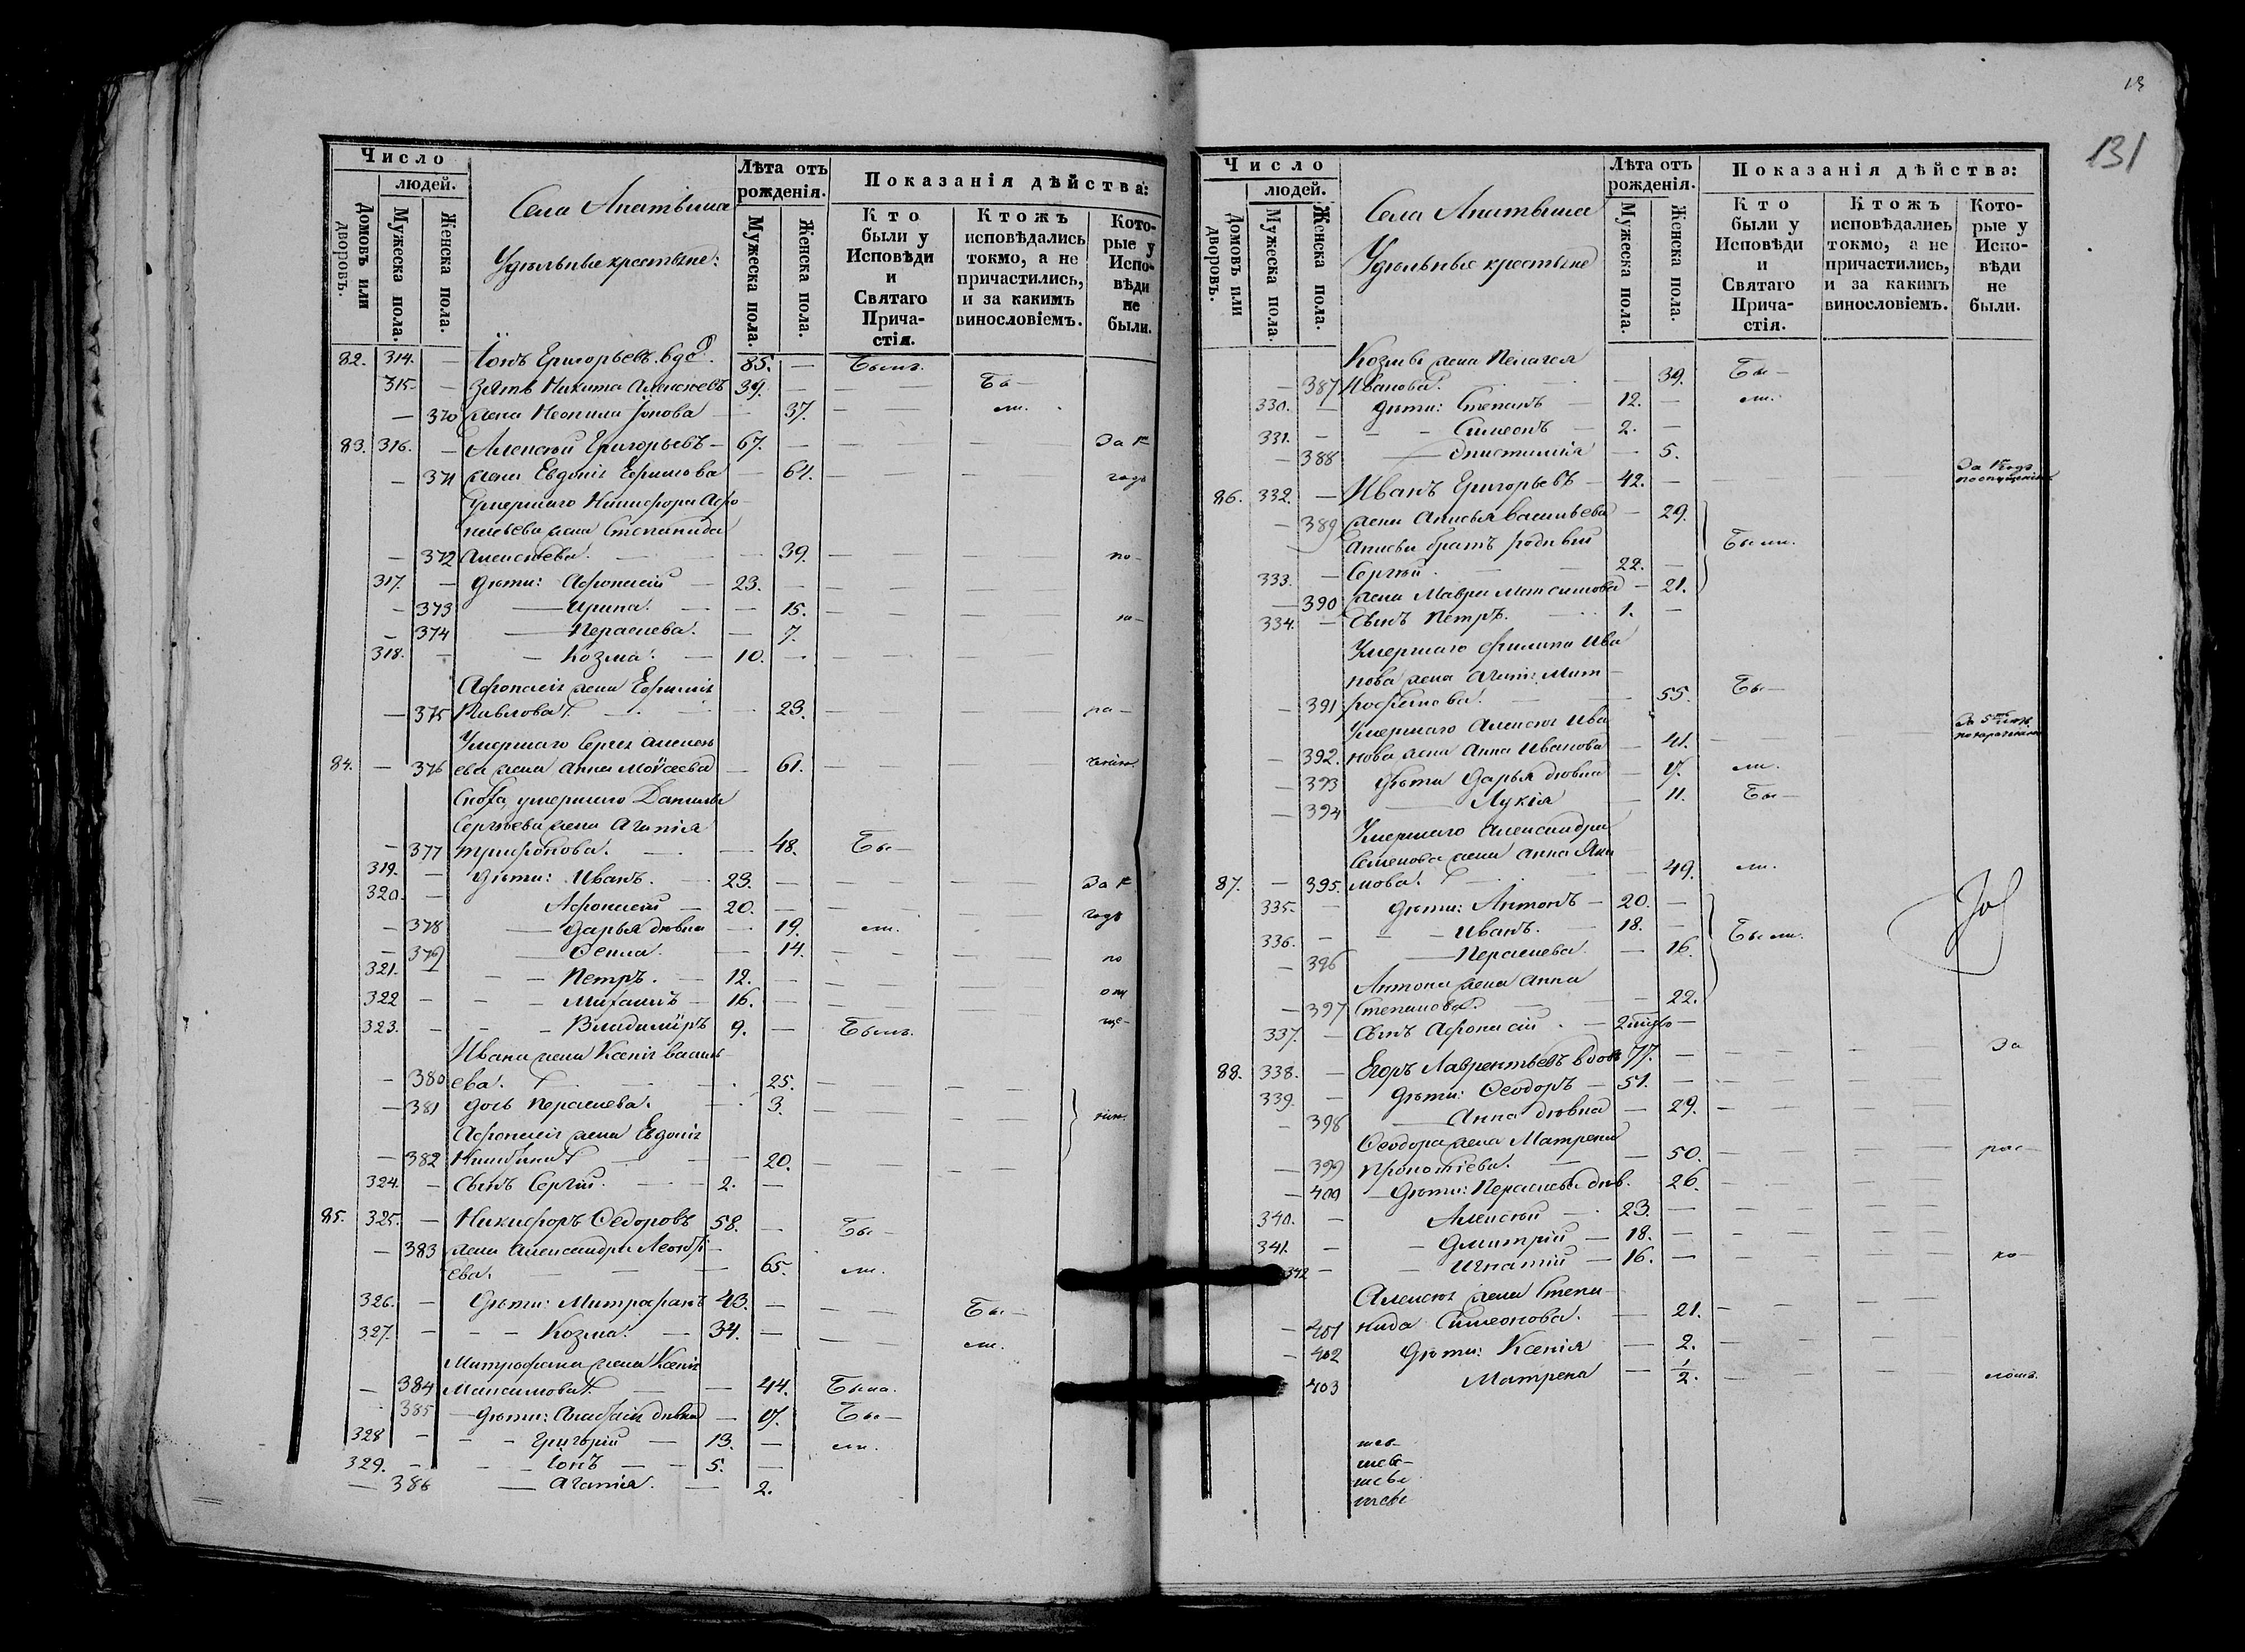 Число
людей.
Домовъ или дворовъ.
Мужеска пола.
Женска пола.
Села
Удѣльные крестьяне:
Лѣта отъ рожденія.
Мужеска пола.
Женска пола.
Показанія дѣйства:
Кто были у Исповѣди и Святаго Прича-стія.
Ктожъ исповѣдались токмо, а не причастились, и за какимъ винословіемъ.
Кото-рые у Испо-вѣди не были.
82. 314. — Іонъ Григорьевъ вд. 85. — Былъ.
315. — Зять Никита Алексѣевъ 39. — Бы—
— 370 жена Неонила Іонова — 37. — ли.
83. 316. — Алексѣй Григорьевъ — 67. — За 1
— 371 жена Евдокія Ефимова — 64. — годъ
Умершаго Никифора Афо-
насьева жена Степанида
— 372 Алексѣева. — 39. — по—
317. — дѣти: Афонасій — 23. —
— 373 — Ирина. — 15. —
— 374 — Параскева. — 7.
318. — Козма. — 10. —
Афонасія жена Евфимія
— 375 Павлова. — 23. — ра—
Умершаго Сергія Алексѣ-
84. — 376 ева жена Анна Моѵсеева — 61. —
Сноха, умершаго Данилы
Сергѣева жена Агапія
— 377 Трифонова. — 48. Бы—
319. — дѣти: Иванъ. — 23. — За 1
320. — Афонасій — 20. — годъ
— 378 — Дарья дѣвка — 19. ли.
— 379 — Ѳекла. — 14. — по
321. — Петръ. — 12. —
322 — Михаилъ — 16. —
323. — Владиміръ 9. — Былъ.
Ивана жена Ксенія Василь-
— 380 ева. — 25. —
— 381 дочь Параскева. — 3. —
Афонасія жена Евдокія
— 382 Никитина — 20. —
324. — сынъ Сергій. — 2. —
85. 325. — Никифоръ Ѳедоровъ 58. — Бы—
— 383 жена Александра Леонть-
ева. — 65. ли.
326. — дѣти: Митрофанъ 43. — Бы—
327. — Козма. — 34. — ли.
Митрофана жена Ксенія
— 384 Максимова — 44. Была.
385 — дѣти: Анастасія дѣвка — 17. Бы—
328 — Григорій — 13. — ли.
329. — Іонъ — 5. —
— 386 — Агапія. — 2.
13
131
Число
людей.
Домовъ или дворовъ.
Мужеска пола.
Женска пола.
Села
Удѣльные крестьяне
Лѣта отъ рожденія.
Мужеска пола.
Женска пола.
Показанія дѣйства:
Кто были у Исповѣди и Святаго Прича-стія.
Ктожъ исповѣдались токмо, а не причастились, и за какимъ винословіемъ.
Кото-рые у Испо-вѣди не были.
Козмы жена Пелагея
— 387 Иванова. — 39. Бы—
330. — дѣти: Степанъ — 12. — ли.
331. — Симеонъ — 2. —
— 388 — 5.
86. 332. — Иванъ Григорьевъ — 42. — За 1 годъ
— 389 жена Анисья Васильева — 29.
Анисьи братъ родный Были.
333. — Сергѣй. — 22. —
— 390 жена Мавра Максимова — 21.
334. — сынъ Петръ. — 1. —
Умершаго Филипа Ива
нова жена Агапія Мит-
— 391 рофанова. — 55. Бы—
Умершаго Алексѣя Ива
— 392. нова жена Анна Иванова — 41. —
— 393 дѣти Дарья дѣвка — 17. ли.
— 394 — Лукія — 11. Бы—
Умершаго Александра
Семенова жена Анна Яки
87. — 395. мова. — 49. ли.
335. — дѣти: Антонъ — 20. —
336. — Иванъ. — 18. — Были.
— 396 — Параскева. — 16.
Антона жена Анна
— 397 Степанова. — 22.
337. — сынъ Афонасій. —
88. 338. — Егоръ Лаврентьевъ вдовъ 77. — За
339. — дѣти: Ѳеодоръ — 51. —
— 398 — Анна дѣвка — 29. —
Ѳеодора жена Матрена
— 399 Прокопіева. — 50. — рас—
— 400 — дѣти: Параскева дѣв. 26. —
340. — Алексѣй — 23. —
341. — Дмитрій — 18. —
342 — Игнатій — 16. — ко—
Алексѣя жена Степа-
— 401 нида Симеонова. — 21. —
— 402 дѣти: Ксенія — 2. —
403 Матрена — 1/2. — ломъ.